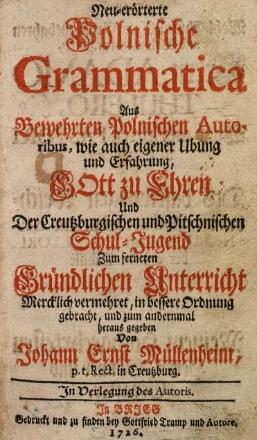 Neu-erörterte
Polnische
Grammatica
Aus
Bewehrten Polnischen Auto-
ribus, wie auch eigener Ubung
und Erfahrung,
GOtt zu Ehren
Und
Der Creutzburgischen und Pitschnischen
Schul-Jugend
Zum ferneren
Gründlichen Unterricht
Mercklich vermehret, in bessere Ordnung
gebracht, und zum andernmal
heraus gegeben
Von
Johann Ernst Müllenheim,
p. t. Rect. in Creutzburg.
In Verlegung des Autoris.
In BRIEG
Gedruckt und zu finden bey Gottfried Tramp und Autore.
1726.